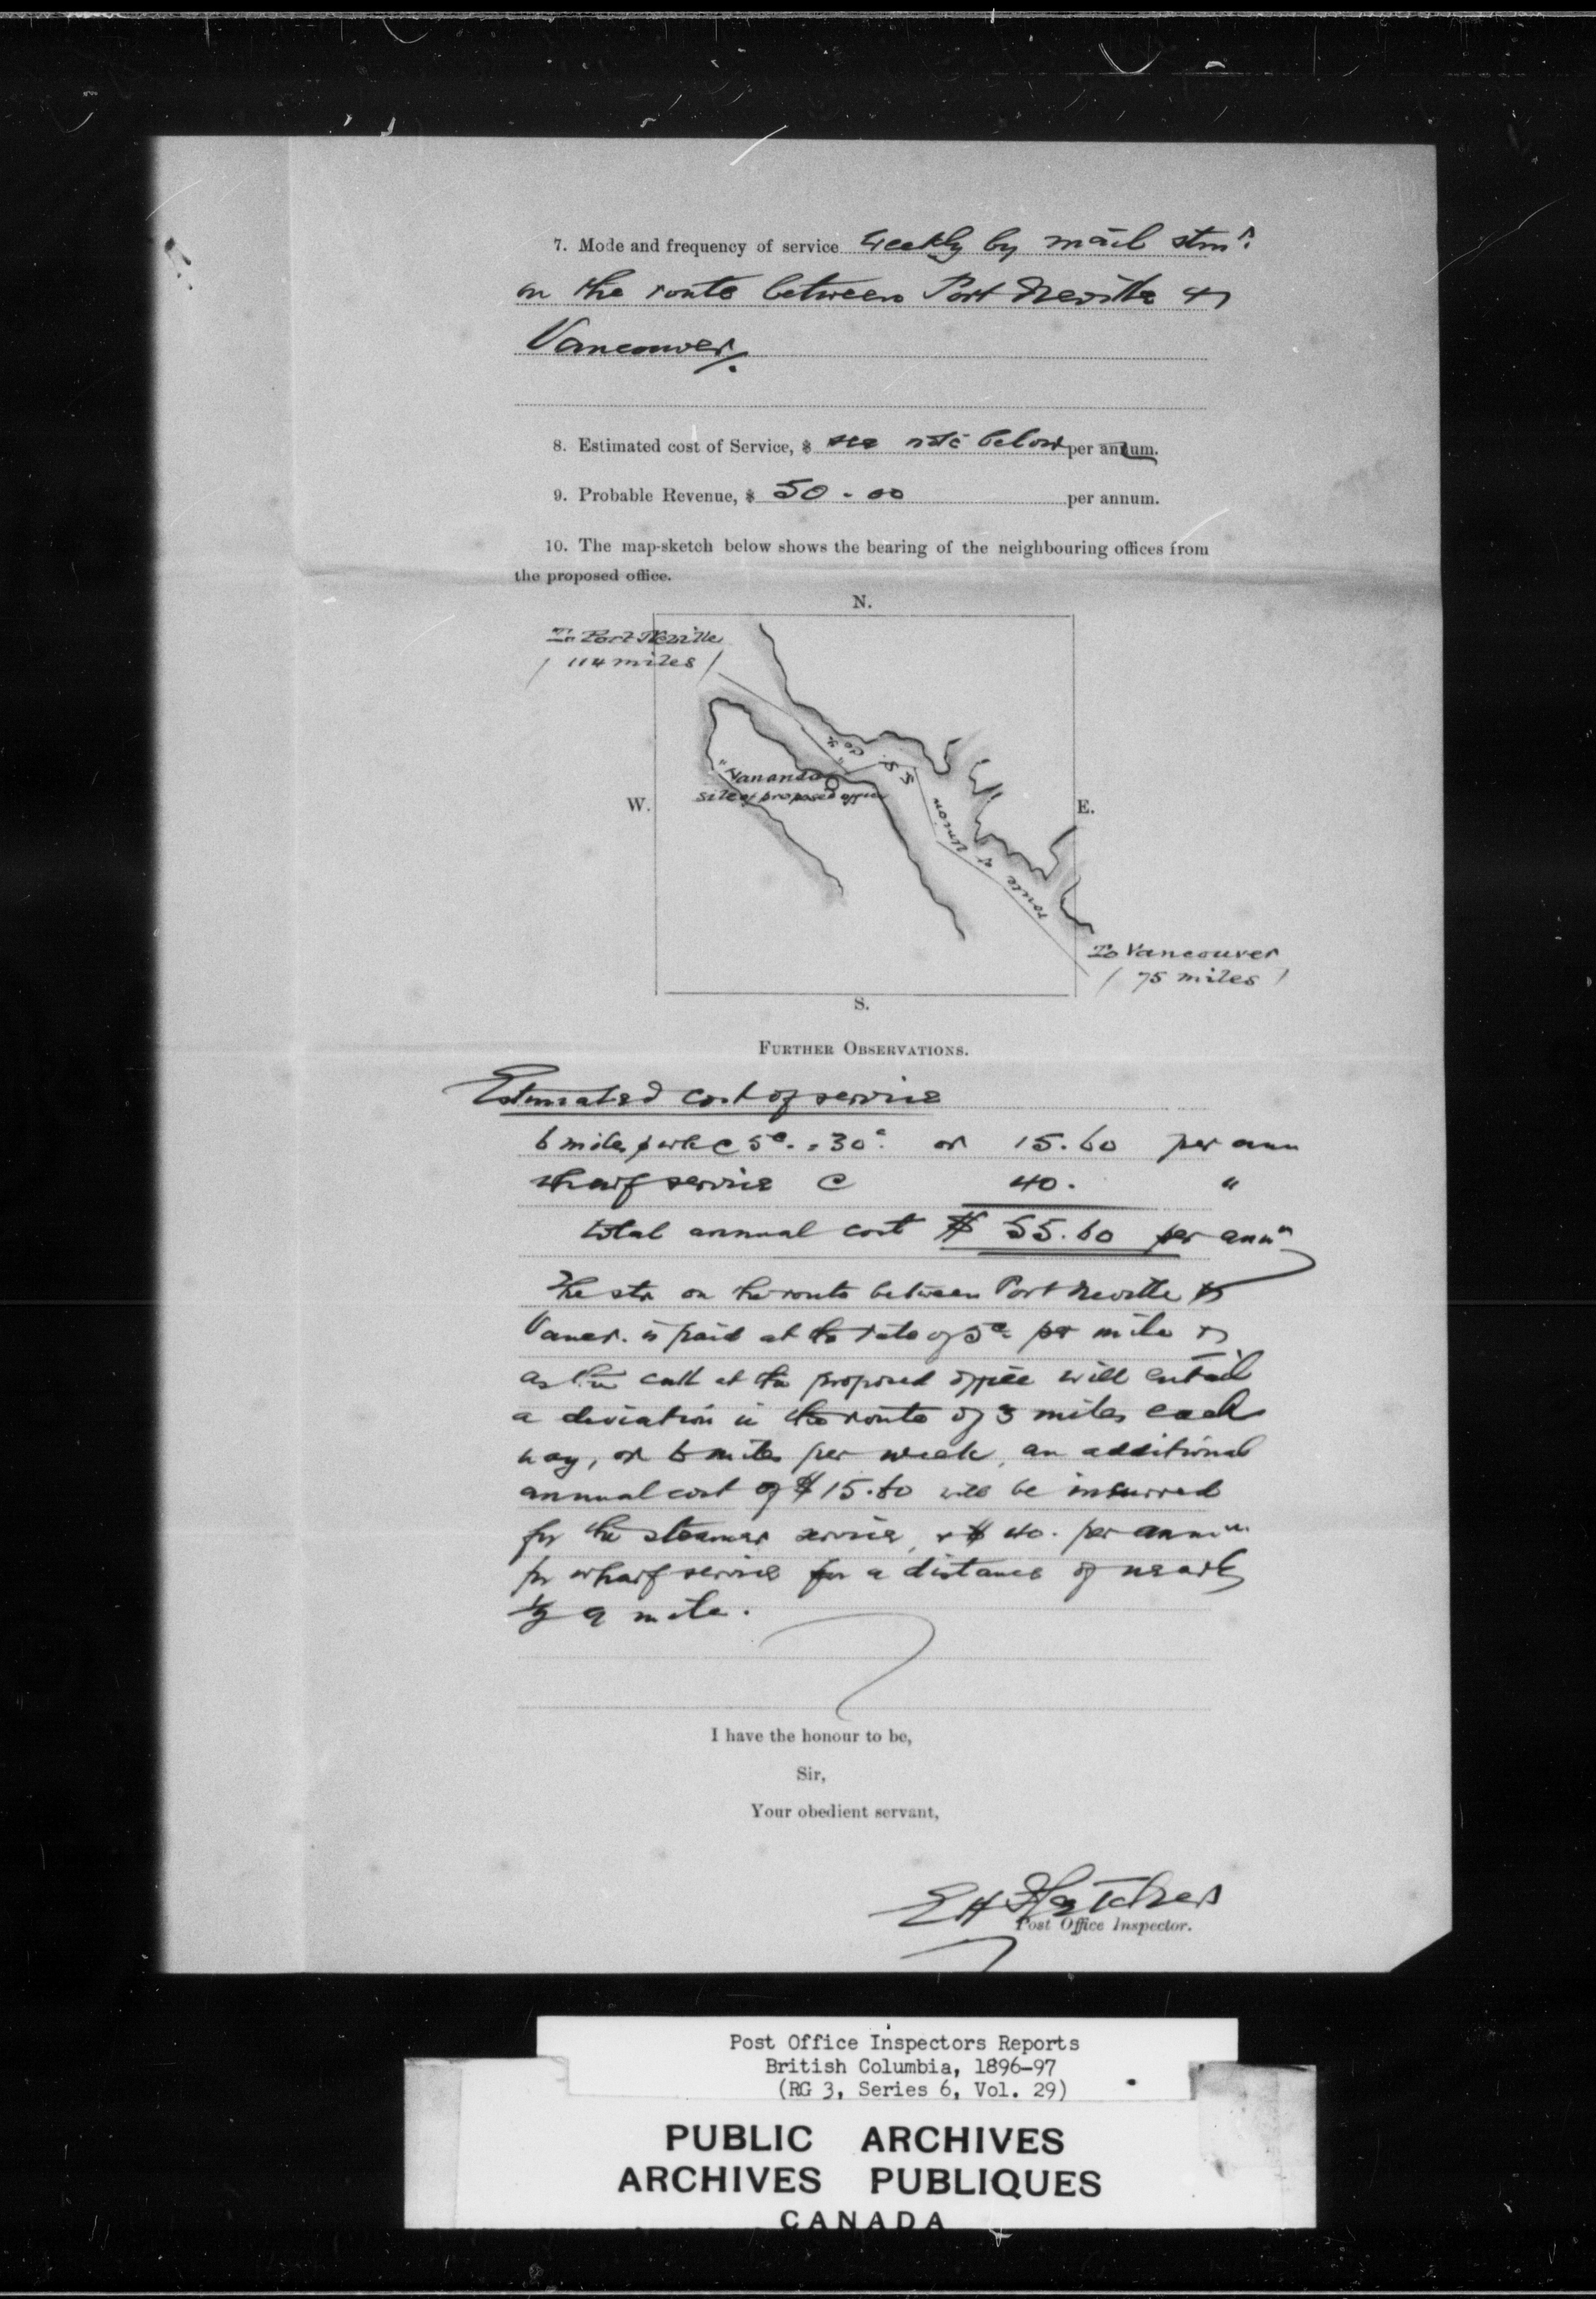 7. Mode and frequency of service Weekly by mail stmr.
on the route between Port Neville &
Vancouver.
8. Estimated cost of Service, $ see note below per annum.
9. Probable Revenue, $ 50.00 per annum.
10. The map-sketch below shows the bearing of the neighbouring offices from
the proposed office.
N.
To Port Neville
( 114 miles )
"Vananda"
Site of proposed office
route of Union S.S. Co's.
W.
E.
To Vancouver
( 75 miles )
S.
FURTHER OBSERVATIONS.
Estimated cost of service
6 miles p wk @ 5c. = 30c. or 15.60 per ann
Wharf service @ 40. "
total annual cost $ 55.60 per annm
The str on the route between Port Neville &
Vancr. is paid at the rate of 5c per mile &
as the call at the proposed office will entail
a deviation in the route of 3 miles each
way, or 6 miles per week, an additional
annual cost of $15.60 will be incurred
for the steamer service, & $40. per annum
for wharf service for a distance of nearly
1/2 a mile.
I have the honour to be,
Sir,
Your obedient servant,
EH Fletcher
Post Office Inspector.
Post Office Inspectors Reports
British Columbia, 1896-97
(RG 3, Series 6, Vol. 29)
PUBLIC ARCHIVES
ARCHIVES PUBLIQUES
CANADA